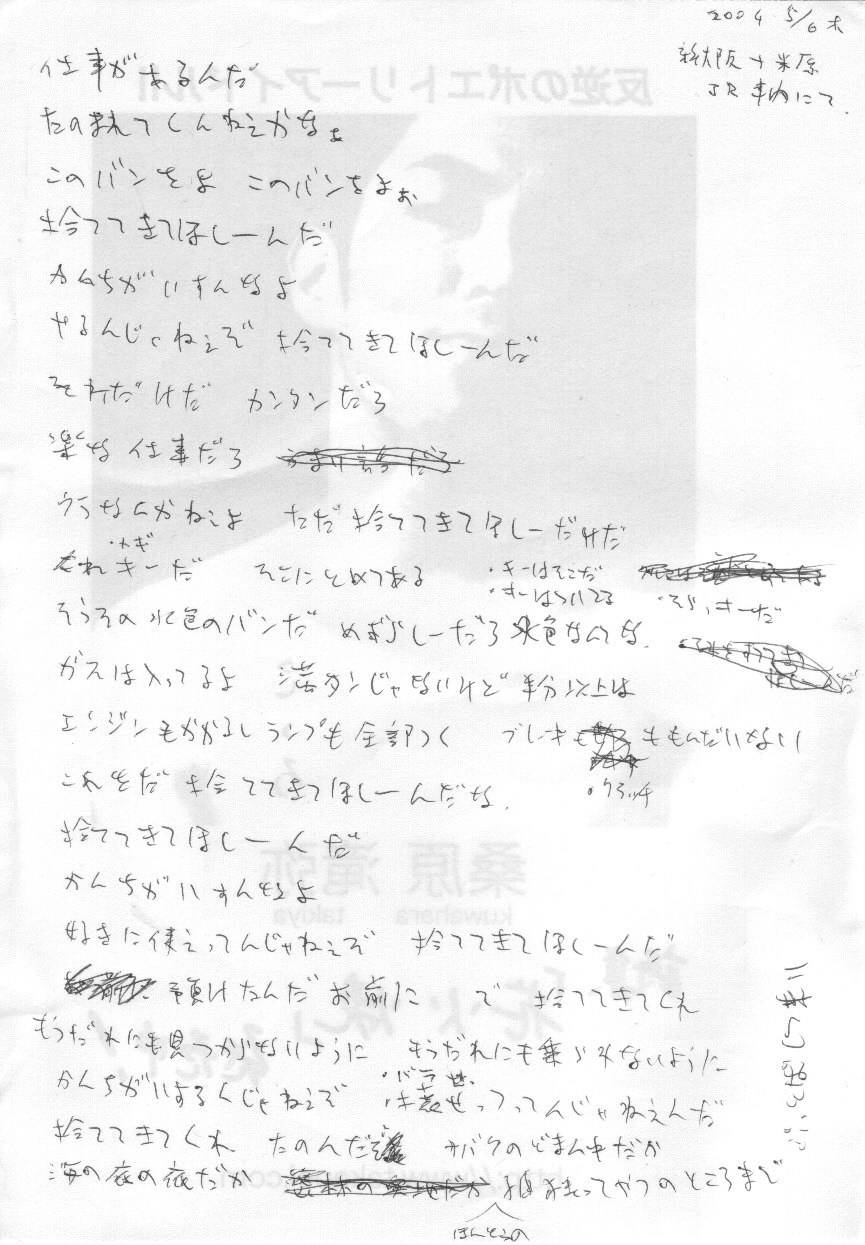 2004 5/6 木
新大阪→米原
JR車内にて
仕事があるんだ
たのまれてくんねえかなぁ
このバンをよ このバンをよぉ
捨ててきてほしーんだ
かんちがいすんなよ
やるんじゃねえぞ 捨ててきてほしーんだ
それだけだ カンタンだろ
楽な仕事だろ
うらなんかねえよ ただ捨ててきてほしーだけだ
・カギ
キーだ そこにとめてある ・キーはそこだ
・キーはついてる ・そら、キーだ
そうその水色のバンだ めずらしーだろ水色なんてな
ガスは入ってるよ 満タンじゃないけど半分以上は
エンジンもかかるし ランプも全部つく ブレーキも もんだいない
・クラッチ
これをだ 捨ててきてほしーんだな
捨ててきてほしーんだ
かんちがいすんなよ
好きに使えってんじゃねえぞ 捨ててきてほしーんだ
預けたんだ お前に で 捨ててきてくれ
もうだれにも見つからないように もうだれにも乗られないように
・バラせ
かんちがいするんじゃねえぞ ・壊せっつってんじゃねえんだ
捨ててきてくれ たのんだぞ サバクのどまん中だか
海の底の底だか 地球ってやつのところまで
ほんとうの
反逆のポエトリーアイドル!!
桑原 滝弥
kuwahara takiya